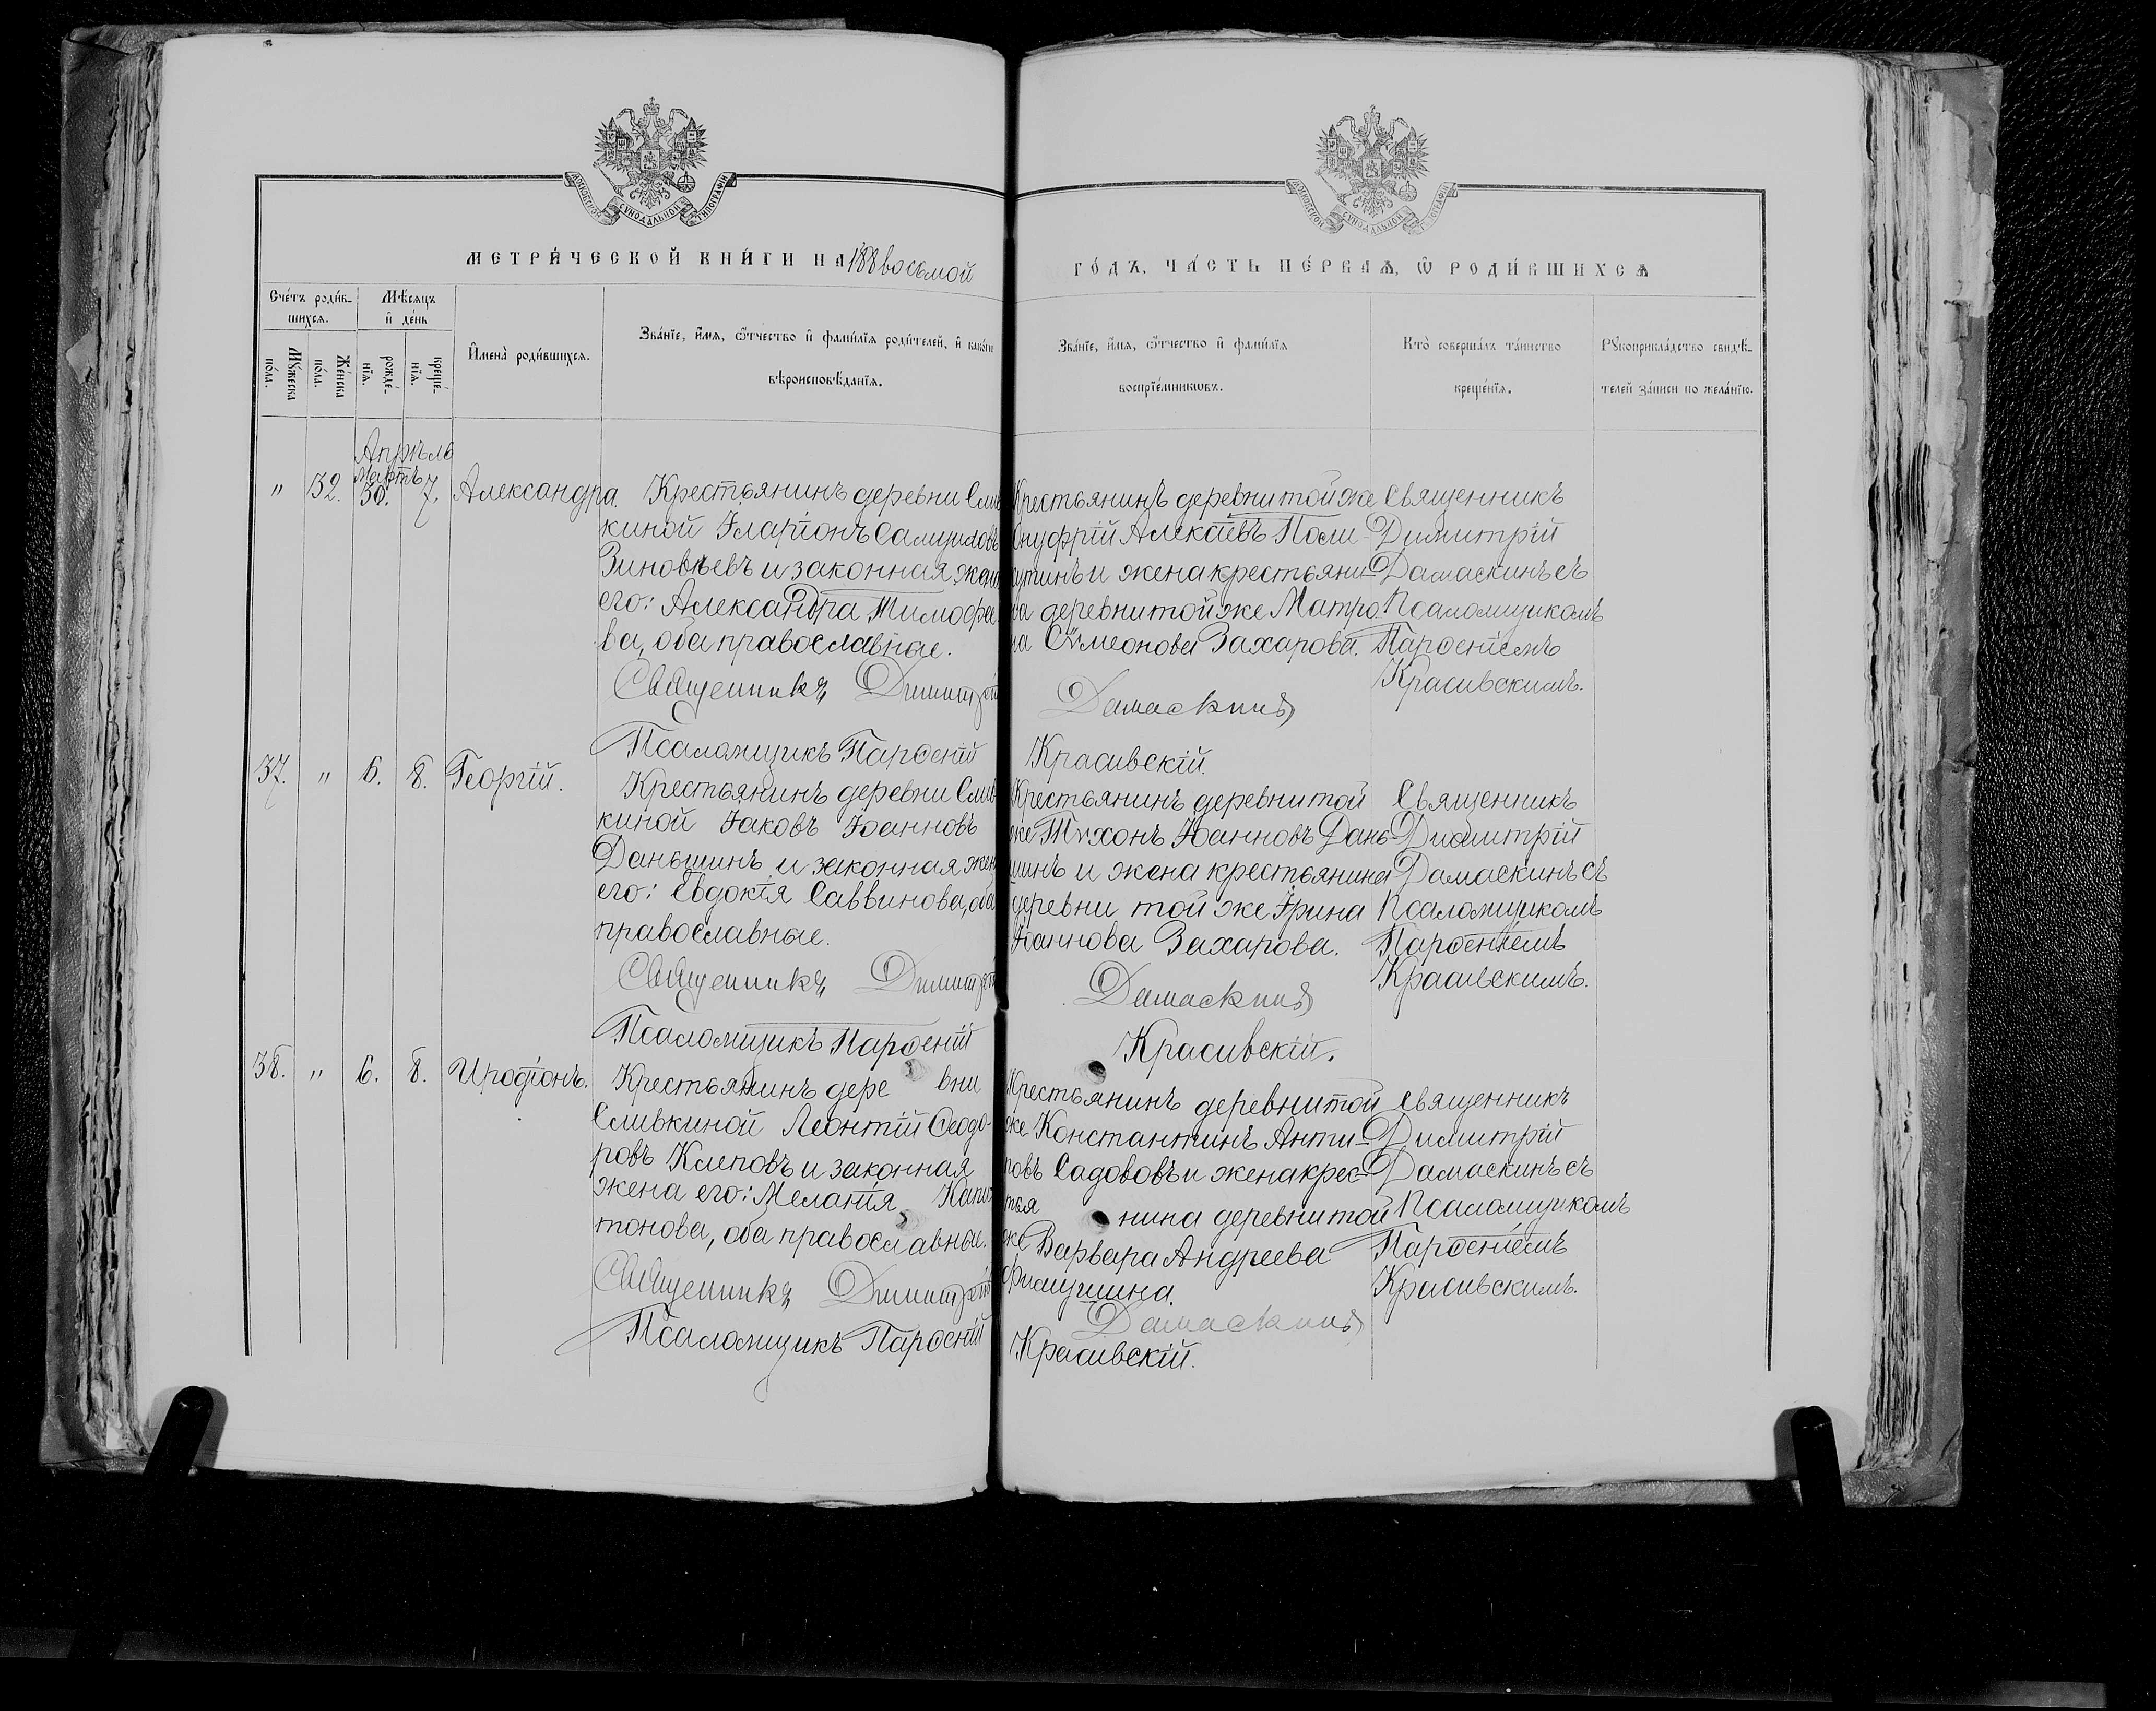 МОСКОВСКОЙ СУНОДАЛЬНОЙ ТИПОГРАФІИ
МОСКОВСКОЙ СУНОДАЛЬНОЙ ТИПОГРАФІИ
МЕТРИ́ЧЕСКОЙ КНИ́ГИ НА 188восьмой
ГО́ДЪ, ЧА́СТЬ ПЕ́РВАѦ, Ѿ РОДИ́ВШИХСѦ
Сче́тъ роди́в-
шихсѧ.
Мѣ́сѧцъ
и҆ де́нь
Мꙋ́жеска
по́ла.
Же́нска
по́ла.
рожде́-
нїѧ.
креще́-
нїѧ.
И҆мена̀ роди́вшихсѧ.
Зва́нїе, и҆́мѧ, ѻ҆́тчество и҆ фами́лїѧ роди́телей, и҆ како́гѡ
вѣроисповѣ́данїѧ.
Зва́нїе, и҆́мѧ, ѻ҆́тчество и҆ фами́лїѧ
воспрїе́мникѡвъ.
Кто̀ соверша́лъ та́инство
креще́нїѧ.
Рꙋкоприкла́дство свидѣ́-
телей за́писи по жела́нїю.
Апрѣль
Мартъ
" 32. 30. 7. Александра.
Крестьянинъ деревни Слив
киной Іларіонъ Самуиловъ
Зиновьевъ и законная жена
его: Александра Тимофее
ва, оба православные.
Священникъ Димитрій
Псаломщикъ Парѳеній
Крестьянинъ деревни той же
Онуфрій Алекѣевъ Поли-
кутинъ и жена крестьяни-
на деревни той же Матро
на Сѵмеонова Захарова.
Дамаскинъ
Красивскій.
Священникъ
Димитрій
Дамаскинъ съ
Псаломщикомъ
Парѳеніемъ
Красивскимъ.
37. " 6. 8. Георгій.
Крестьянинъ деревни Слив
киной Іаковъ Іоанновъ
Даньшинъ и законная жена
его: Евдокія Саввинова, оба
православные.
Священникъ Димитрій
Псаломщикъ Парѳеній
Крестьянинъ деревни той
же Тихонъ Іоанновъ Дань-
шинъ и жена крестьянина
деревни той же Ірина
Іоаннова Захарова.
Дамаскинъ
Красивскій.
Священникъ
Димитрій
Дамаскинъ съ
Псаломщикомъ
Парѳеніемъ
Красивскимъ.
38. " 6. 8. Иродіонъ.
Крестьянинъ дере вни
Сливкиной Леонтій Ѳеодо-
ровъ Клеповъ и законная
жена его: Меланія Капи
тонова, оба православные.
Священникъ Димитрій
Псаломщикъ Парѳеній
Крестьянинъ деревни той
же Константинъ Анти-
повъ Садововъ и жена крес-
тья нина деревни той
же Варвара Андреева
Дамаскинъ
Красивскій.
Священникъ
Димитрій
Дамаскинъ съ
Псаломщикомъ
Парѳеніемъ
Красивскимъ.